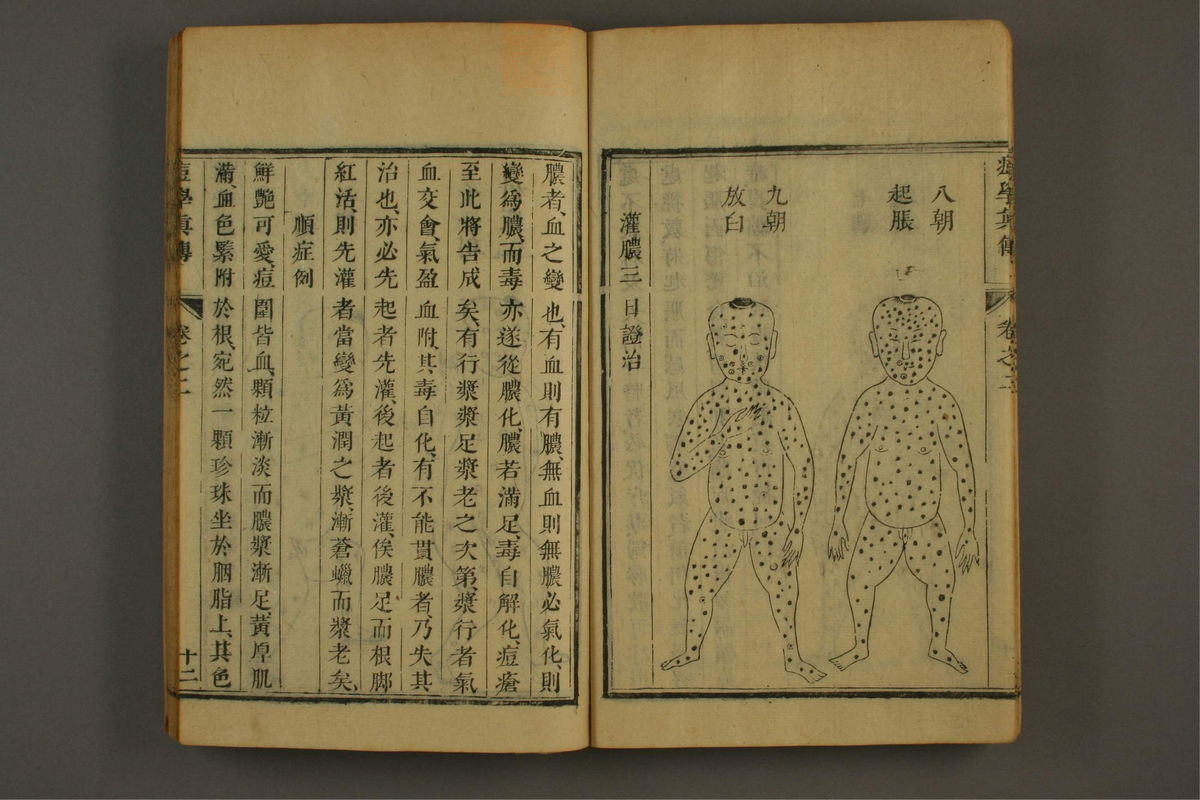 八朝
起脹
九朝
放白
灌膿三日證治
膿者、血之變也、有血則有膿、無血則無膿、必氣化、則
變爲膿、而毒亦遂從膿化、膿若滿足、毒自解化、痘瘡
至此將告成矣、有行漿漿足漿老之次第、漿行者氣
血交會、氣盈血附、其毒自化、有不能貫膿者、乃失其
治也、亦必先起者先灌、後起者後灌、俟膿足而根脚
紅活、則先灌者當變爲黃潤之漿、漸蒼蠟而漿老矣、
順症例
鮮艷可愛、痘圍皆血、顆粒漸淡而膿漿漸足、黃厚肌
滿、血色緊附於根、宛然一顆珍珠坐於胭脂上、其色
痘學眞傳 卷之二 十二